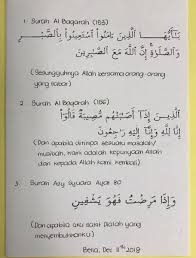 1. Surah Al Baqarah (153)
يَـٰٓأَيُّهَا الَّذِينَ ءَامَنُوا اسْتَعِينُوا بِالصَّبْرِ
وَالصَّلَوٰةِ إِنَّ اللَّهَ مَعَ الصَّـٰبِرِينَ
(Sesungguhnya Allah bersama orang-orang
yang sabar)
2. Surah Al Baqarah (156)
الَّذِينَ إِذَا أَصَـٰبَتْهُم مُّصِيبَةٌ قَالُوا
إِنَّا لِلَّهِ وَإِنَّا إِلَيْهِ رَٰجِعُونَ
(Dan apabila ditimpa sesuatu masalah/
musibah, kami adalah kepunyaan Allah
dan kepada Allah kami kembali)
3. Surah Asy Syuara Ayat 80
وَإِذَا مَرِضْتُ فَهُوَ يَشْفِينِ
(Dan apabila aku sakit Dialah yang
menyembuhkanku)
Dec 11th 2018